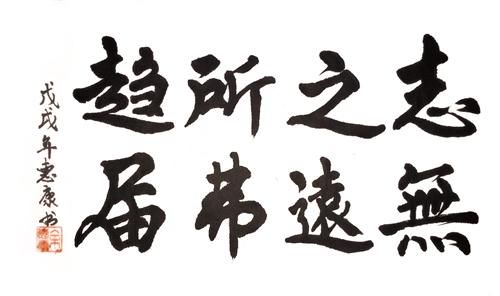 志之所趋
無遠弗届
戊戌年惠康书